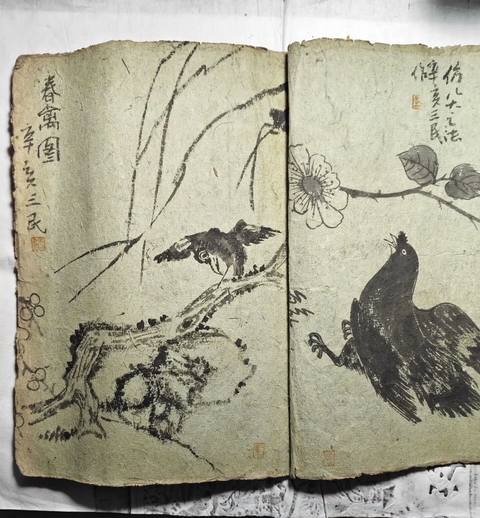 春禽图
辛亥三民
仿八大之法
辛亥三民
作